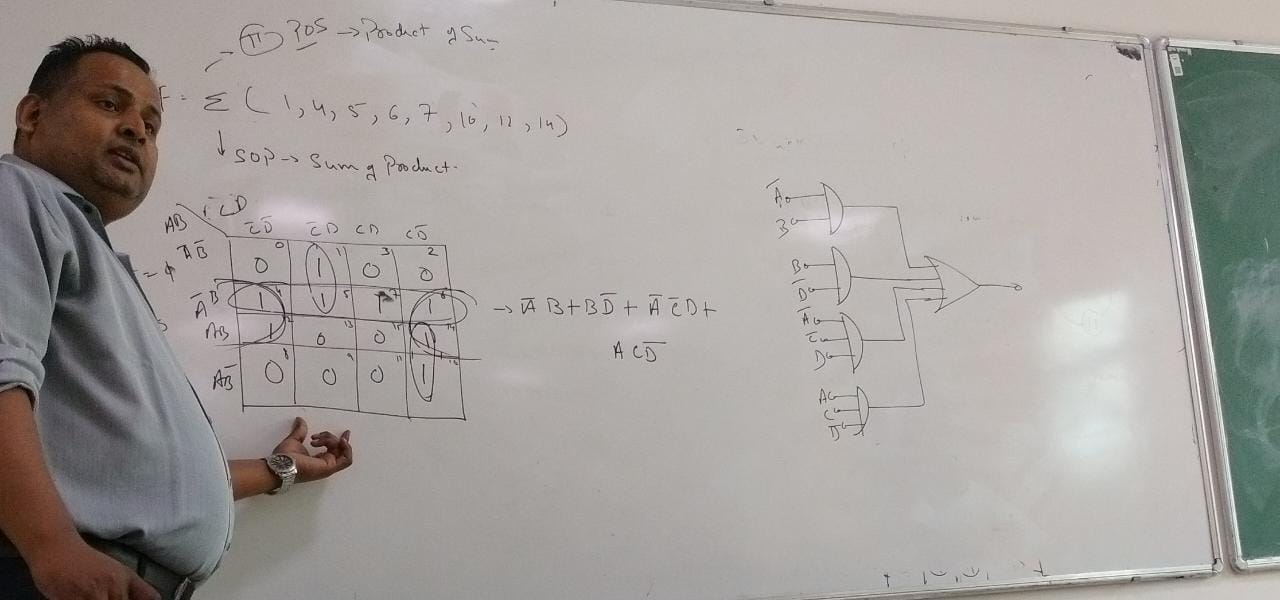 (π) POS → Product of Sum
F = Σ ( 1, 4, 5, 6, 7, 10, 12, 14)
↓ SOP → Sum of Product.
AB CD C̅D̅ C̅D CD CD̅
A̅B̅ 0 0 1 1 0 3 0 2
A̅B 1 4 1 5 1 7 1 6
AB 1 12 0 13 0 15 1 14
AB̅ 0 8 0 9 0 11 1 10
→ A̅B + BD̅ + A̅C̅D +
ACD̅
A̅
B
B
D̅
A̅
C̅
D
A
C
D̅